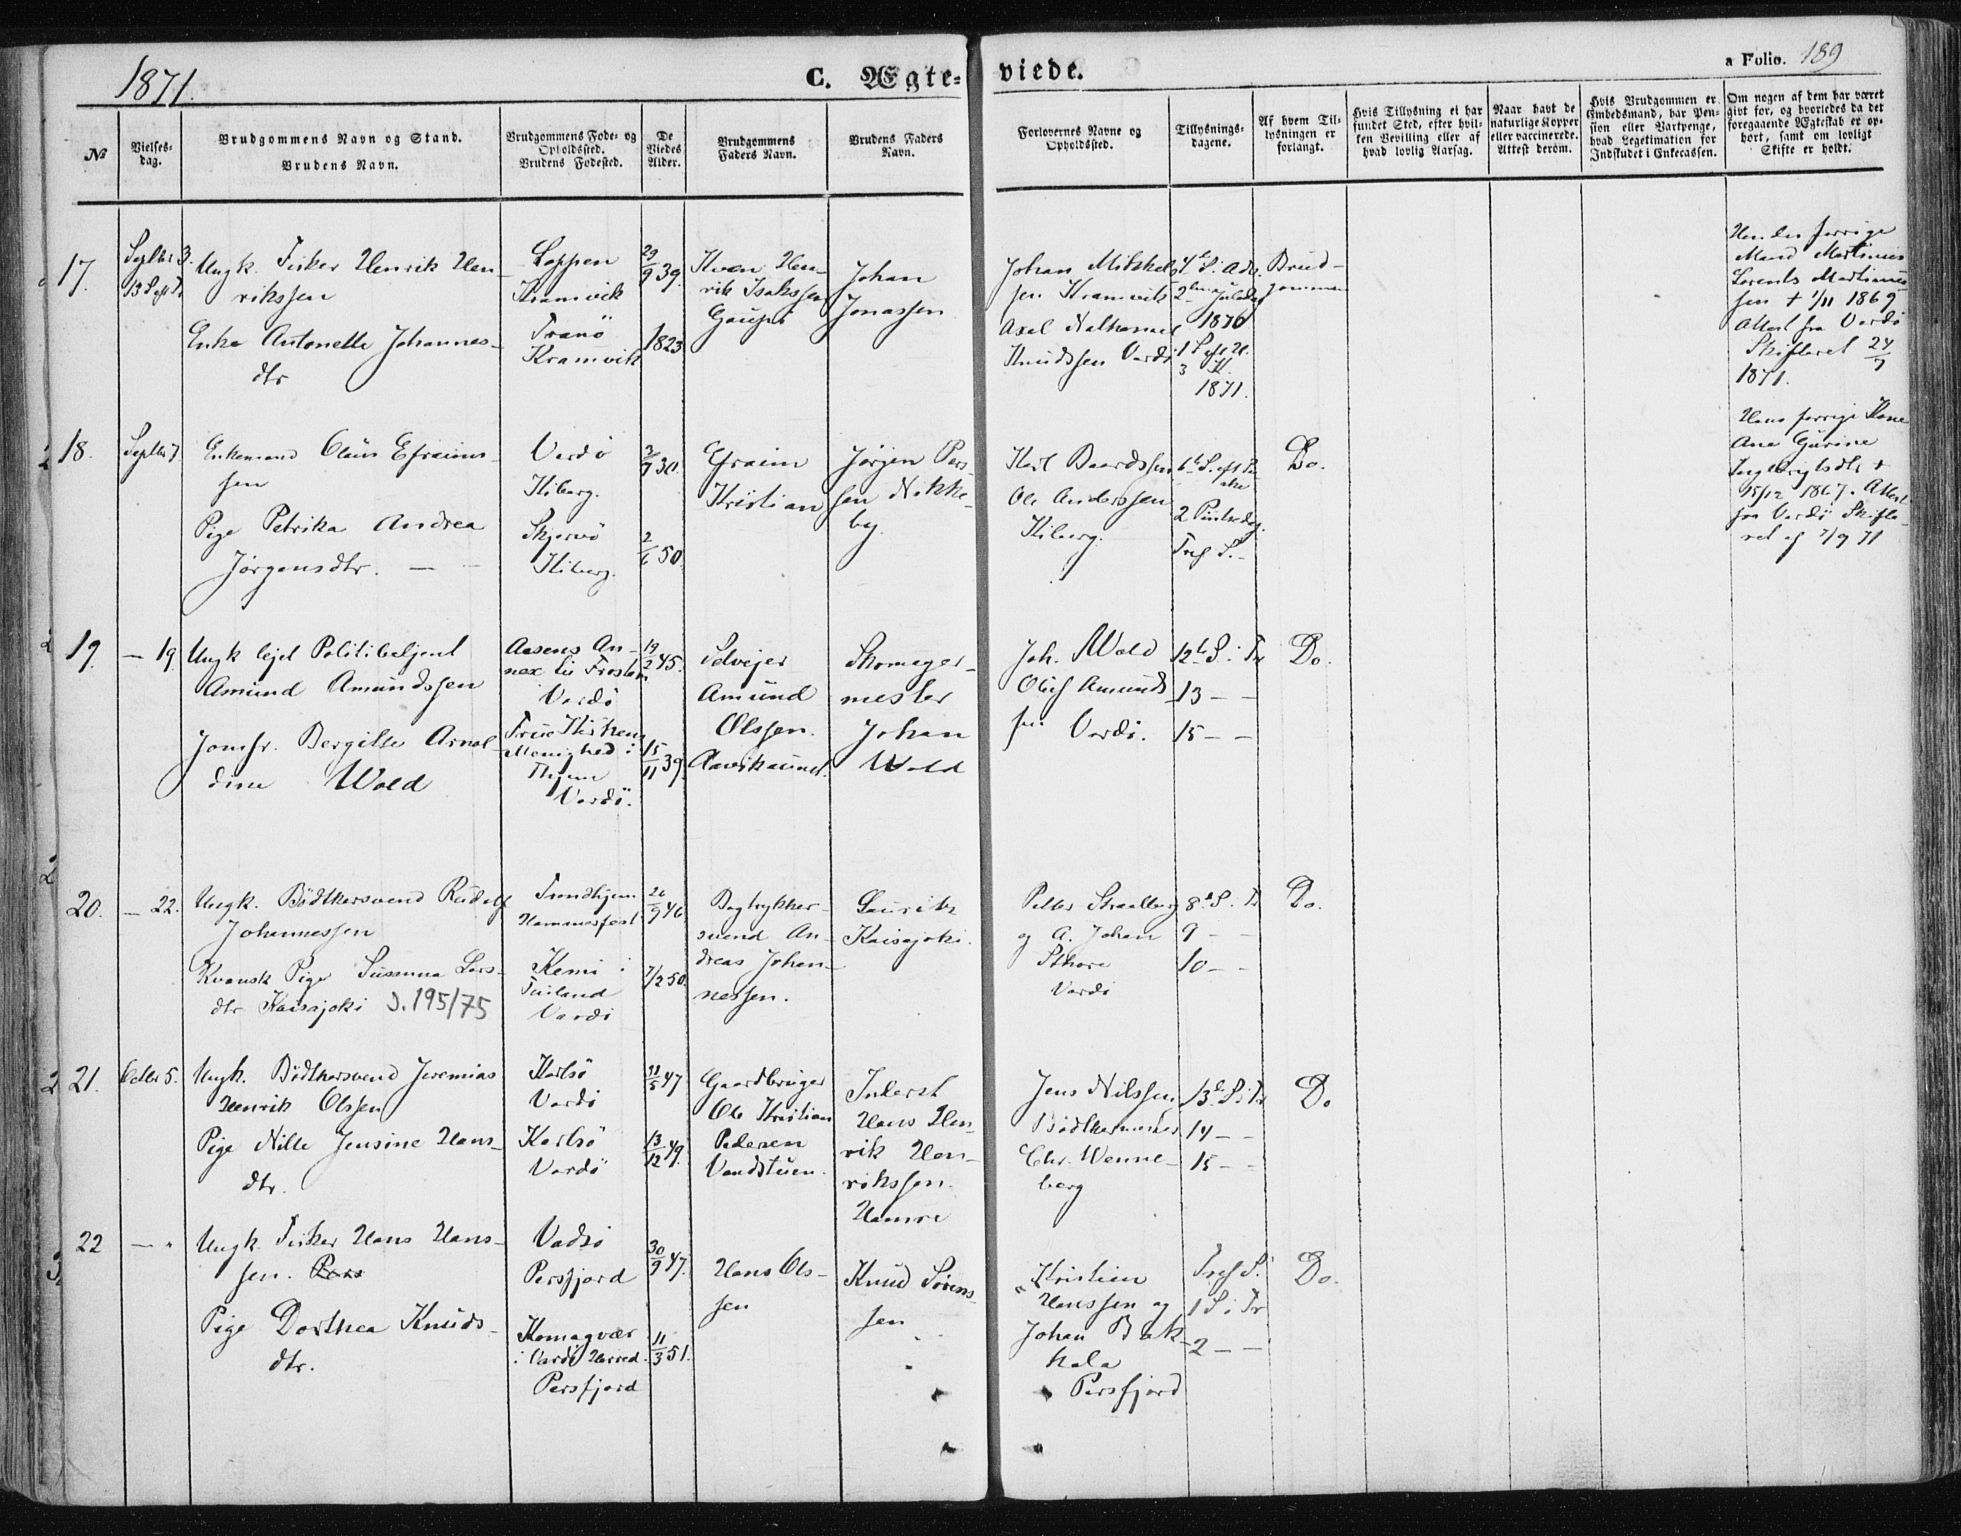 1871.
C. Ægte-
viede.
a Folio. 189
No
Vielses-
dag.
Brudgommens Navn og Stand.
Brudens Navn.
Brudgommens Føde- og
Opholdssted.
Brudens Fødested.
De
Viedes
Alder.
Brudgommens
Faders Navn.
Brudens Faders
Navn.
Forlovernes Navne og
Opholdssted.
Tillysnings-
dagene.
Af hvem Til-
lysningen er
forlangt.
Hvis Tillysning ei har
fundet Sted, efter hvil-
ken Bevilling eller af
hvad lovlig Aarsag.
Naar havt de
naturlige Kopper
eller vaccinerede.
Attest derom.
Hvis Brudgommen er
Embedsmand, har Pen-
sion eller Vartpenge,
hvad Legetimation for
Indskudet i Enkecassen.
Om nogen af dem har været
givt før, og hvorledes da det
foregaaende Ægteskab er op-
hørt, samt om lovligt
Skifte er holdt.
17.
Septbr 3.
13 S. eft Tr
Ungk. Fisker Henrik Hen-
riksen
Enke Antonette Johannes-
dtr
Loppen
Kramvik
Tranø
Kramvik
29/9 39.
1823
Kven Hen-
rik Isaksen
Gaupi
Johan
Jonassen
Johan Mikkel-
sen Kramvik
Axel
Knudssen Vardø
4de S. i Adv.
2den Juledag
1870
1 S. eft H.
3 K.
1871.
Brud-
gommen
Hendes forrige
Mand Martinus
Lorents Martinus-
sen + 1/11 1869
Attest fra Vardø
Skifteret 24/7
1871.
18.
Septbr 7.
Enkemand Claus Efraims-
sen
Pige Petrika Andrea
Jørgensdtr. —
Vardø
Kiberg.
Skjervø
Kiberg.
2/7 30.
2/6 50.
Efraim
Kristian
Jørgen Pers-
sen Nikke-
by.
Karl Baardssen
Ole Anderssen
Kiberg.
6te S. eft Paa-
ske
2 Pintsedag.
Tref S. -
Do.
Hans forrige Kone
Ane Gurine
Ingebrigtsdtr +
15/12 1867. Attest
fra Vardø Skifte-
ret af 7/9 71
19.
— 19
Ungk lejet Politibetjent
Amund Amundssen
Jomfr. Bergitte Arnol-
dine Wold
Aasens An-
nex til Frosten
Vardø
Frue Kirkens
Menighed i
Thjem
Vardø.
19/2 45.
15/11 39.
Selvejer
Amund
Olssen.
Skomager-
mester
Johan
Wold
Joh. Wold
Oluf Amunds
sen Vardø.
12te S. i Tr
13 — —
15 — —
Do.
20.
— 22.
Ungk. Bødtkersvend Rudolf
Johannessen
Kvænsk Pige Susanna Lars-
dtr Kaisajoki D. 195/75
Trondhjem
Hammerfest
Kemi i
Finland
Vardø
26/9 46
7/2 50.
Bogtrykker-
svend An-
dreas Johan-
nessen.
Laurik
Kaisajoki.
Petter Straalberg
og A. Johan
Vardø
8de S. i Tr
9 — —
10 — —
Do.
21.
Octbr 5.
Ungk. Bødtkersvend Jeremias
Henrik Olssen
Pige Nille Jensine Hans-
dtr.
Karlsø
Vardø
Karlsø
Vardø
11/5 47
13/12 49.
Gaardbruger
Ole Kristian
Pedersen
Vandstuen.
Inderst
Hans Hen-
rik Hen-
rikssen
Hamre
Jens Nilssen
Bødtkermester
Chr. Wenne-
berg
13de S. i Tr
14 — —
15 — —
Do
22
— "
Ungk. Fisker Hans Hans-
sen. Pers
Pige Dorthea Knuds-
dtr.
Vadsø
Persfjord
Komagvær
i Vardø Herred.
Persfjord
30/9 47.
11/3 51.
Hans Ols-
sen
Knud Sørens-
sen
Kristian
Hanssen og
Johan Bak-
kala
Persfjord
Tref S.
1 S. i Tr
2 — —
Do.